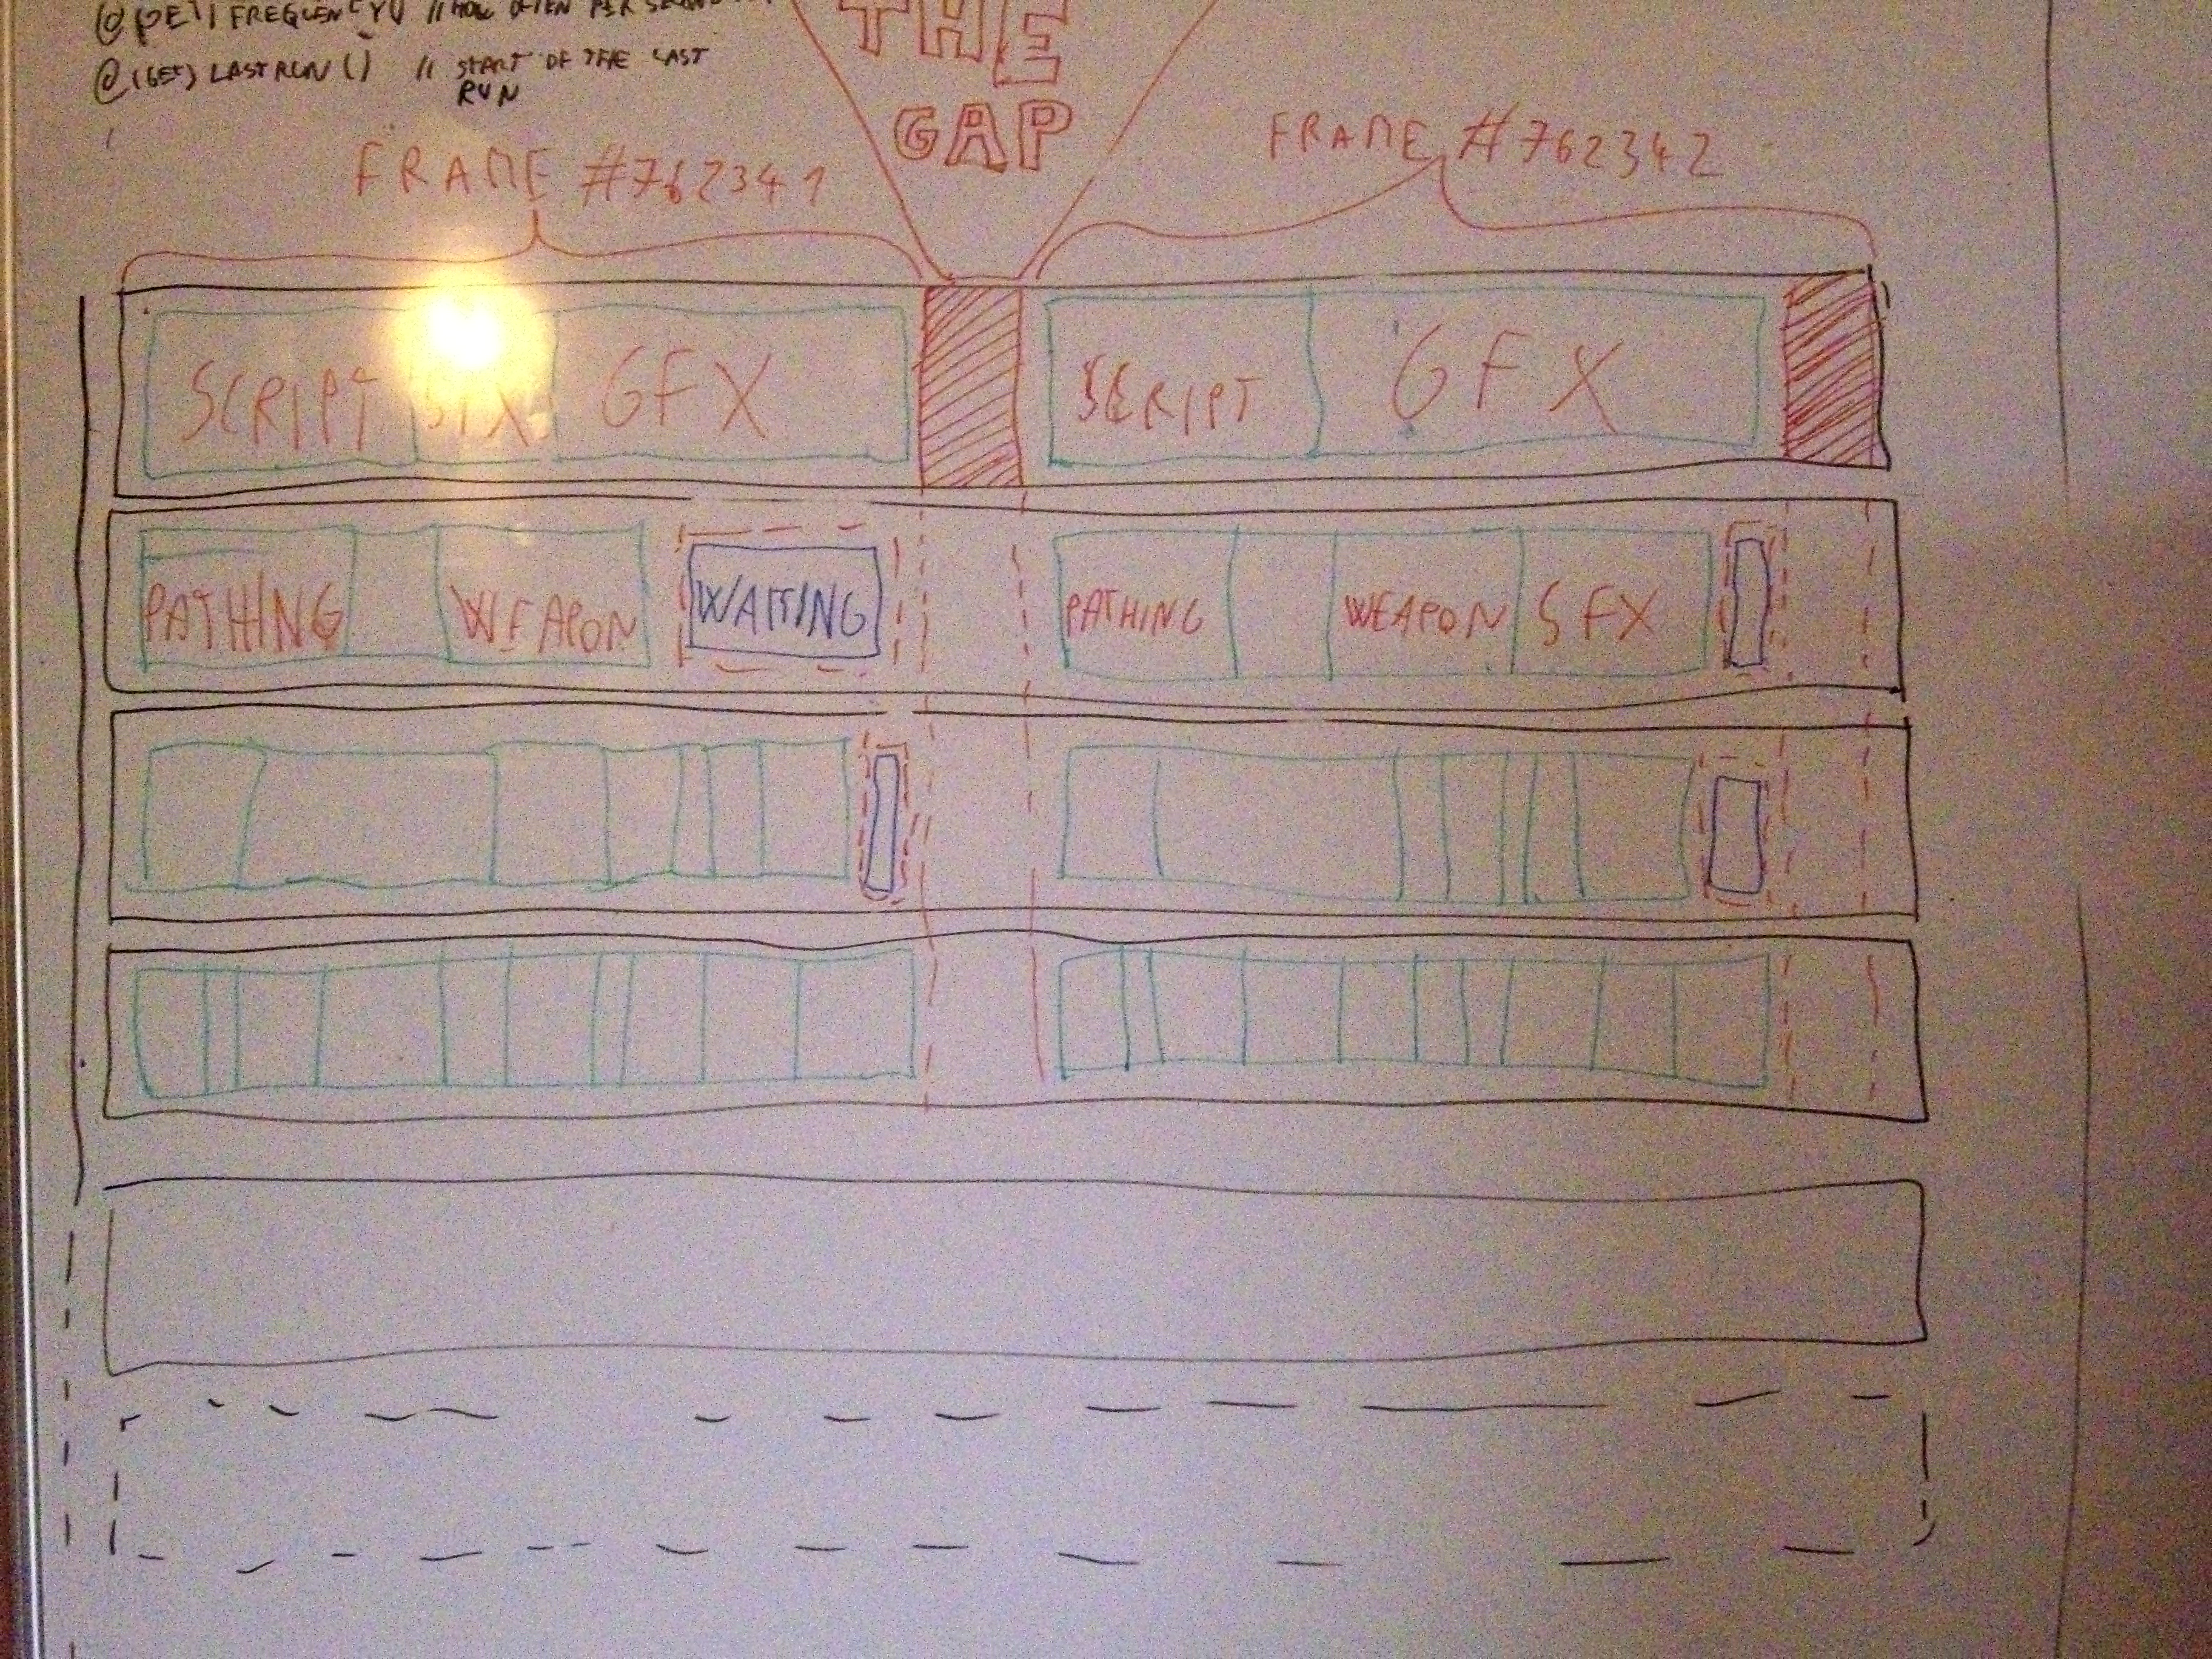 FREQUENCY() // HOW OFTEN PER
@(GET) LASTRUN() // START OF THE LAST
RUN
THE
GAP
FRAME #762341
FRAME #762342
SCRIPT SFX GFX
SCRIPT GFX
PATHING WEAPON WAITING
PATHING WEAPON SFX